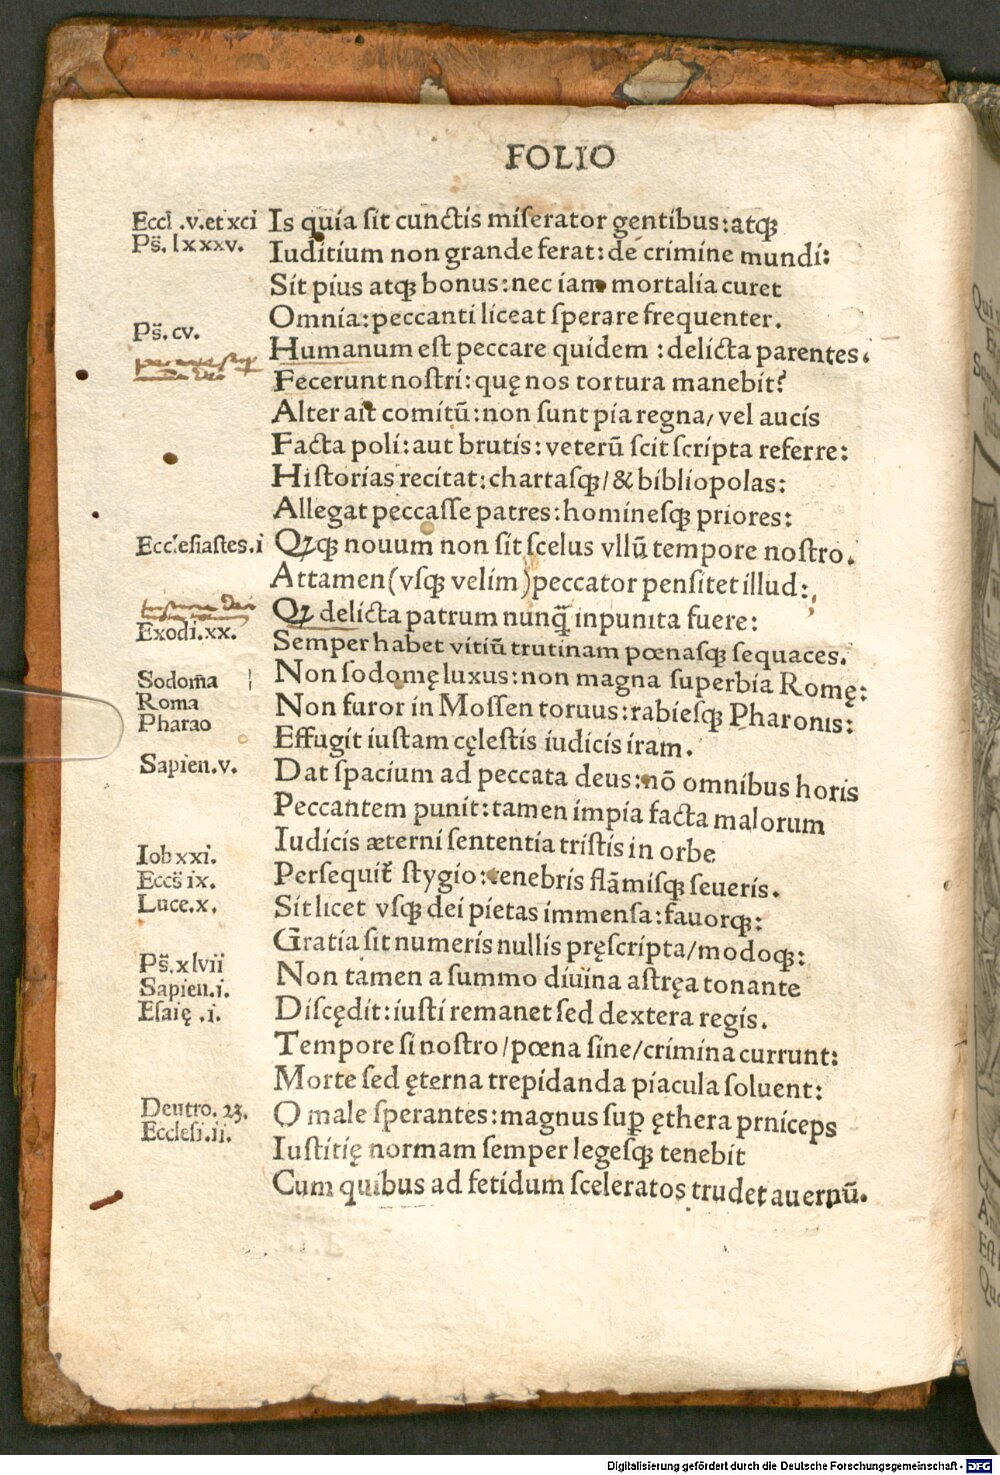 FOLIO
Eccl .v.et xci
Is quia sit cunctis miserator gentibus:atqꝫ
Ps̈. lxxxv.
Iuditium non grande ferat: de crimine mundi:
Sit pius atqꝫ bonus: nec iam mortalia curet
Omnia: peccanti liceat sperare frequenter.
Ps̈. cv.
Humanum est peccare quidem : delicta parentes.
Fecerunt nostri: quę nos tortura manebit?
Alter ait comitũ: non sunt pia regna/ vel aucis
Facta poli: aut brutis: veterũ scit scripta referre:
Historias recitat: chartasqꝫ/ & bibliopolas:
Allegat peccasse patres: hominesqꝫ priores:
Ecclesiastes.i
Qꝫqꝫ nouum non sit scelus vllũ tempore nostro.
Attamen (vsqꝫ velim) peccator pensitet illud:
Qꝫ delicta patrum nunq̃ inpunita fuere:
Exodi.xx.
Semper habet vitiũ trutinam pœnasqꝫ sequaces.
Sodom̃a
Non sodomę luxus: non magna superbia Romę:
Roma
Non furor in Mossen toruus: rabiesqꝫ Pharonis:
Pharao
Effugit iustam cęlestis iudicis iram.
Sapien.v.
Dat spacium ad peccata deus: nõ omnibus horis
Peccantem punit: tamen impia facta malorum
Iudicis æterni sententia tristis in orbe
Iob xxi.
Persequit᷑ stygio: tenebris flãmisqꝫ seueris.
Eccs̈ ix.
Luce.x.
Sit licet vsqꝫ dei pietas immensa: fauorqꝫ:
Gratia sit numeris nullis pręscripta/ modoqꝫ:
Ps̈. xlvii
Non tamen a summo diuina astręa tonante
Sapien.i.
Esaię .i.
Discędit: iusti remanet sed dextera regis.
Tempore si nostro/ pœna sine/ crimina currunt:
Morte sed ęterna trepidanda piacula soluent:
Deutro. 23.
O male sperantes: magnus suꝑ ęthera prniceps
Ecclesi.ii.
Iustitię normam semper legesqꝫ tenebit
Cum quibus ad fetidum sceleratos trudet auernũ.
Digitalisierung gefördert durch die Deutsche Forschungsgemeinschaft - DFG